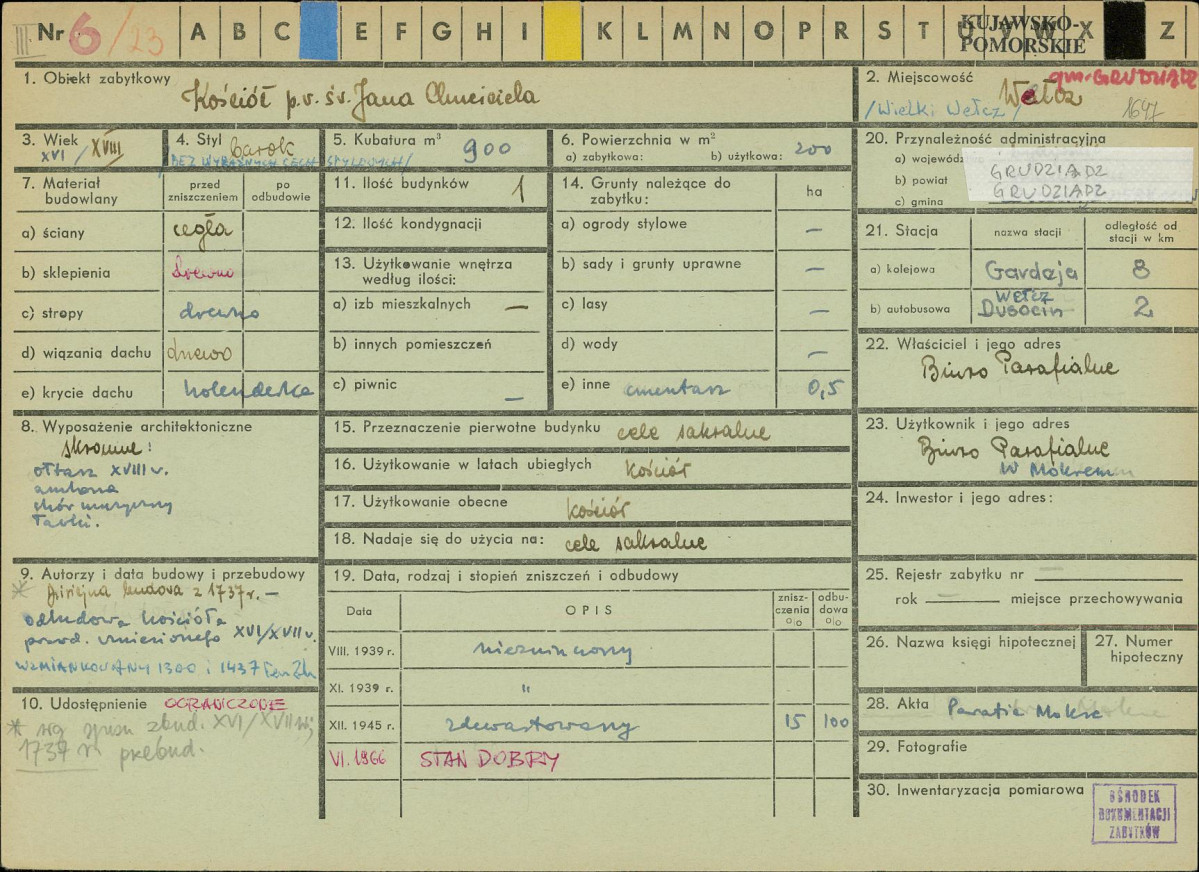 III Nr 6/23 A B C E F G H I K L M N O P R S T U V W X Z
KUJAWSKO-
POMORSKIE
1. Obiekt zabytkowy
Kościół p.w. św. Jana Chrzciciela
2. Miejscowość gm. GRUDZIĄDZ
Wełcz
/Wielki Wełcz/ 1697
3. Wiek
XVI / XVIII
4. Styl barok
BEZ WYRAŹNYCH CECH STYLOWYCH/
5. Kubatura m³ 900
6. Powierzchnia w m²
a) zabytkowa: b) użytkowa: 200
7. Materiał budowlany
przed zniszczeniem
po odbudowie
a) ściany cegła
b) sklepienia drewno
c) stropy drewno
d) wiązania dachu drewno
e) krycie dachu holenderka
8. Wyposażenie architektoniczne
skromne:
ołtarz XVIII w.
ambona
chór muzyczny
ławki.
9. Autorzy i data budowy i przebudowy
* budowa z 1737 r. –
odbudowa kościoła
prawd. wzniesionego XVI/XVII w.
WZMIANKOWANY 1300 i 1437
10. Udostępnienie OGRANICZONE
* wg zbud. XVI/XVII w;
1737 r. przebud.
11. Ilość budynków 1
12. Ilość kondygnacji
13. Użytkowanie wnętrza
według ilości:
a) izb mieszkalnych —
b) innych pomieszczeń
c) piwnic —
14. Grunty należące do
zabytku:
ha
a) ogrody stylowe —
b) sady i grunty uprawne —
c) lasy —
d) wody —
e) inne cmentarz 0,5
15. Przeznaczenie pierwotne budynku cele sakralne
16. Użytkowanie w latach ubiegłych kościół
17. Użytkowanie obecne kościół
18. Nadaje się do użycia na: cele sakralne
19. Data, rodzaj i stopień zniszczeń i odbudowy
Data
OPIS
zniszczenia %
odbudowa %
VIII. 1939 r. niezniszczony
XI. 1939 r. "
XII. 1945 r. zdewastowany 15 100
VI. 1966 STAN DOBRY
20. Przynależność administracyjna
a) wojewódz
b) powiat GRUDZIĄDZ
c) gmina GRUDZIĄDZ
21. Stacja
nazwa stacji
odległość od
stacji w km
a) kolejowa Gardeja 8
b) autobusowa Wełcz Dusocin 2
22. Właściciel i jego adres
Biuro Parafialne
23. Użytkownik i jego adres
Biuro Parafialne
w Mokrem
24. Inwestor i jego adres:
25. Rejestr zabytku nr —
rok — miejsce przechowywania
26. Nazwa księgi hipotecznej
27. Numer
hipoteczny
28. Akta Parafia Mokre
29. Fotografie
30. Inwentaryzacja pomiarowa
OŚRODEK
DOKUMENTACJI
ZABYTKÓW